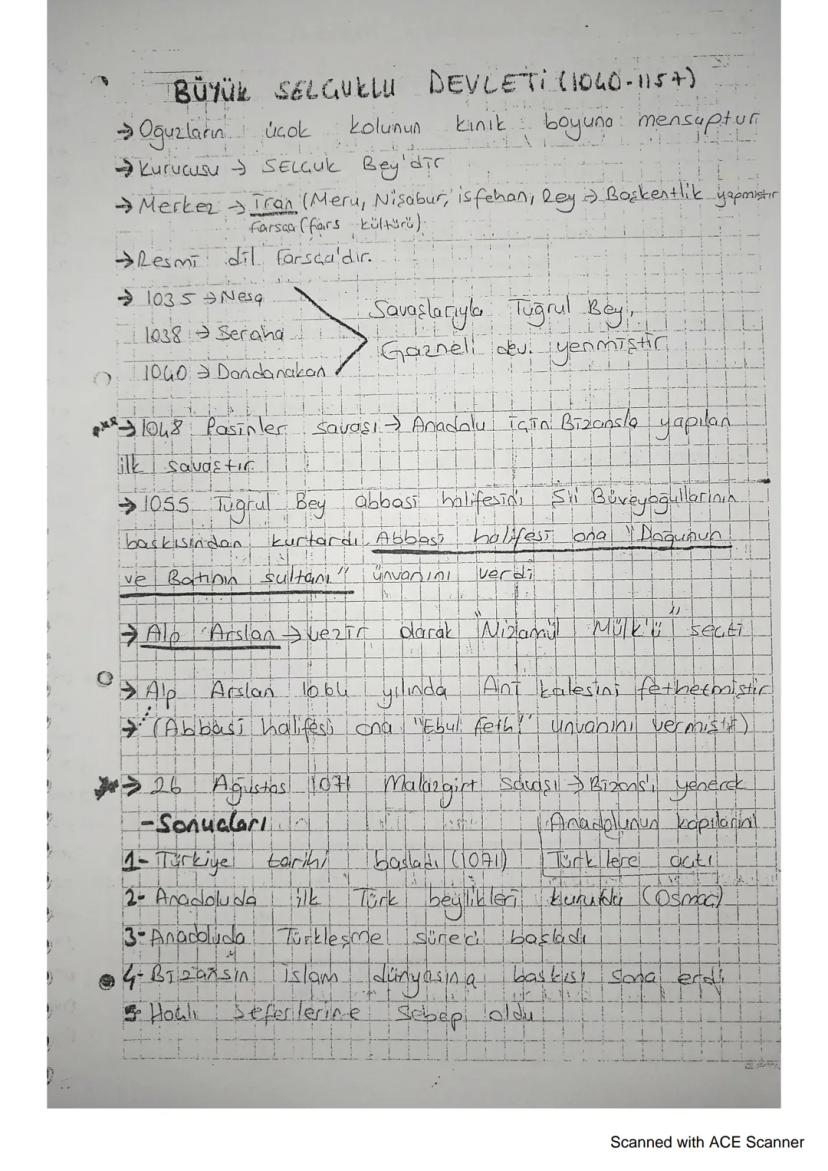 BÜYÜK SELÇUKLU DEVLETİ (1040-1157)
→ Oğuzların üçok kolunun kınık boyuna mensuptur
→ Kurucusu → SELÇUK Bey'dir
→ Merkez → İran (Meru, Nişabur, isfehan, Rey → Başkentlik yapmıştır
Farsça (fars kültürü)
→ Resmi dil Farsça'dır.
→ 1035 → Nesa
1038 → Serahs
1040 → Dandanakan
Savaşlarıyla Tuğrul Bey,
Gazneli dev. yenmiştir
→ 1048 Pasinler savaşı → Anadolu için Bizansla yapılan
ilk savaştır
→ 1055 Tuğrul Bey abbasi halifesini Şii Büveyoğullarının
baskısından kurtardı Abbasi halifesi ona "Doğunun
ve Batının sultanı" ünvanını verdi
→ Alp Arslan → vezir olarak "Nizamül Mülk'ü" seçti
→ Alp Arslan 1064 yılında Ani kalesini fethetmiştir
→ (Abbasi halifesi ona "Ebul feth" ünvanını vermiştir)
→ 26 Ağustos 1071 Malazgirt savaşı → Bizans'ı yenerek
Anadolunun kapılarını
Türklere açtı
- Sonuçları
1- Türkiye tarihi başladı (1071)
2- Anadoluda ilk Türk beylikleri kuruldu (Osmaç)
3- Anadoluda Türkleşme süreci başladı
4- Bizansın islam dünyasına baskısı sona erdi
5- Haçlı seferlerine sebep oldu
Scanned with ACE Scanner